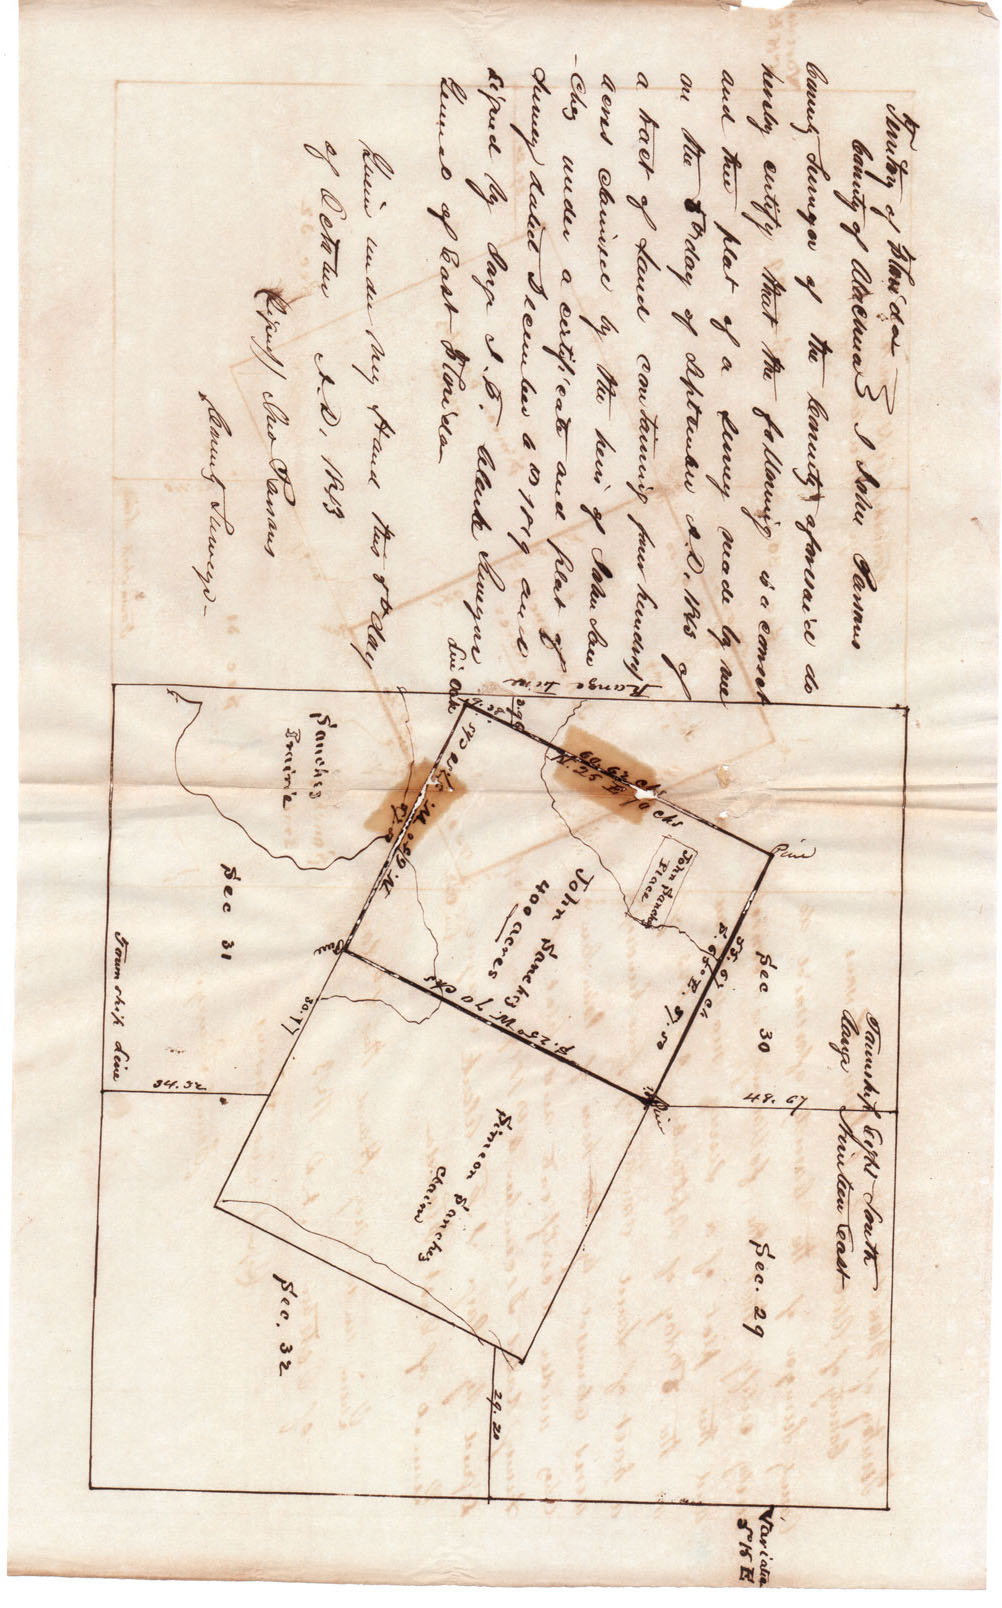 Territory of Florida
County of Alachua } I John Parsons
County Surveyor of the County aforesaid do
hereby certify that the following is a correct
and true plat of a survey made by me
on the 5th day of September A.D. 1843 of
a tract of Land containing four hundred
acres claimed by the heirs of John San
-chez under a certificate and plat of
Survey dated December 1819 and
signed by Surveyor
General of East Florida
Given under my Hand this 5th day
of October A.D. 1843
(Signed) Jno Parsons
County Surveyor
Township Eight South
Range Nineteen East
Range Line
Live Oak
Sanchez
Prairie
Sec 31
Township Line
34.52
N. 25 E 70 chs
John Sanchez
Place
Pine
Sec 30
John Sanchez
400 acres
S. 65° E. 57.50
S. 25° W. 70 chs
Pine
Pine
48.67
30.17
Simeon Sanches
claim
Sec. 29
Sec. 32
29.20
Variation
5° 15 E